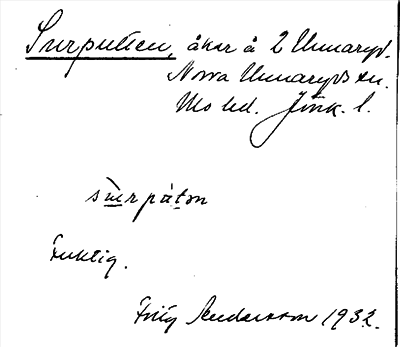 Surputten, åker å 2 Unnaryd.
Norra Unnaryds sn.
Mo hd. Jönk. l.
surpåton
Fuktig.
Fritz Andersson 1932.